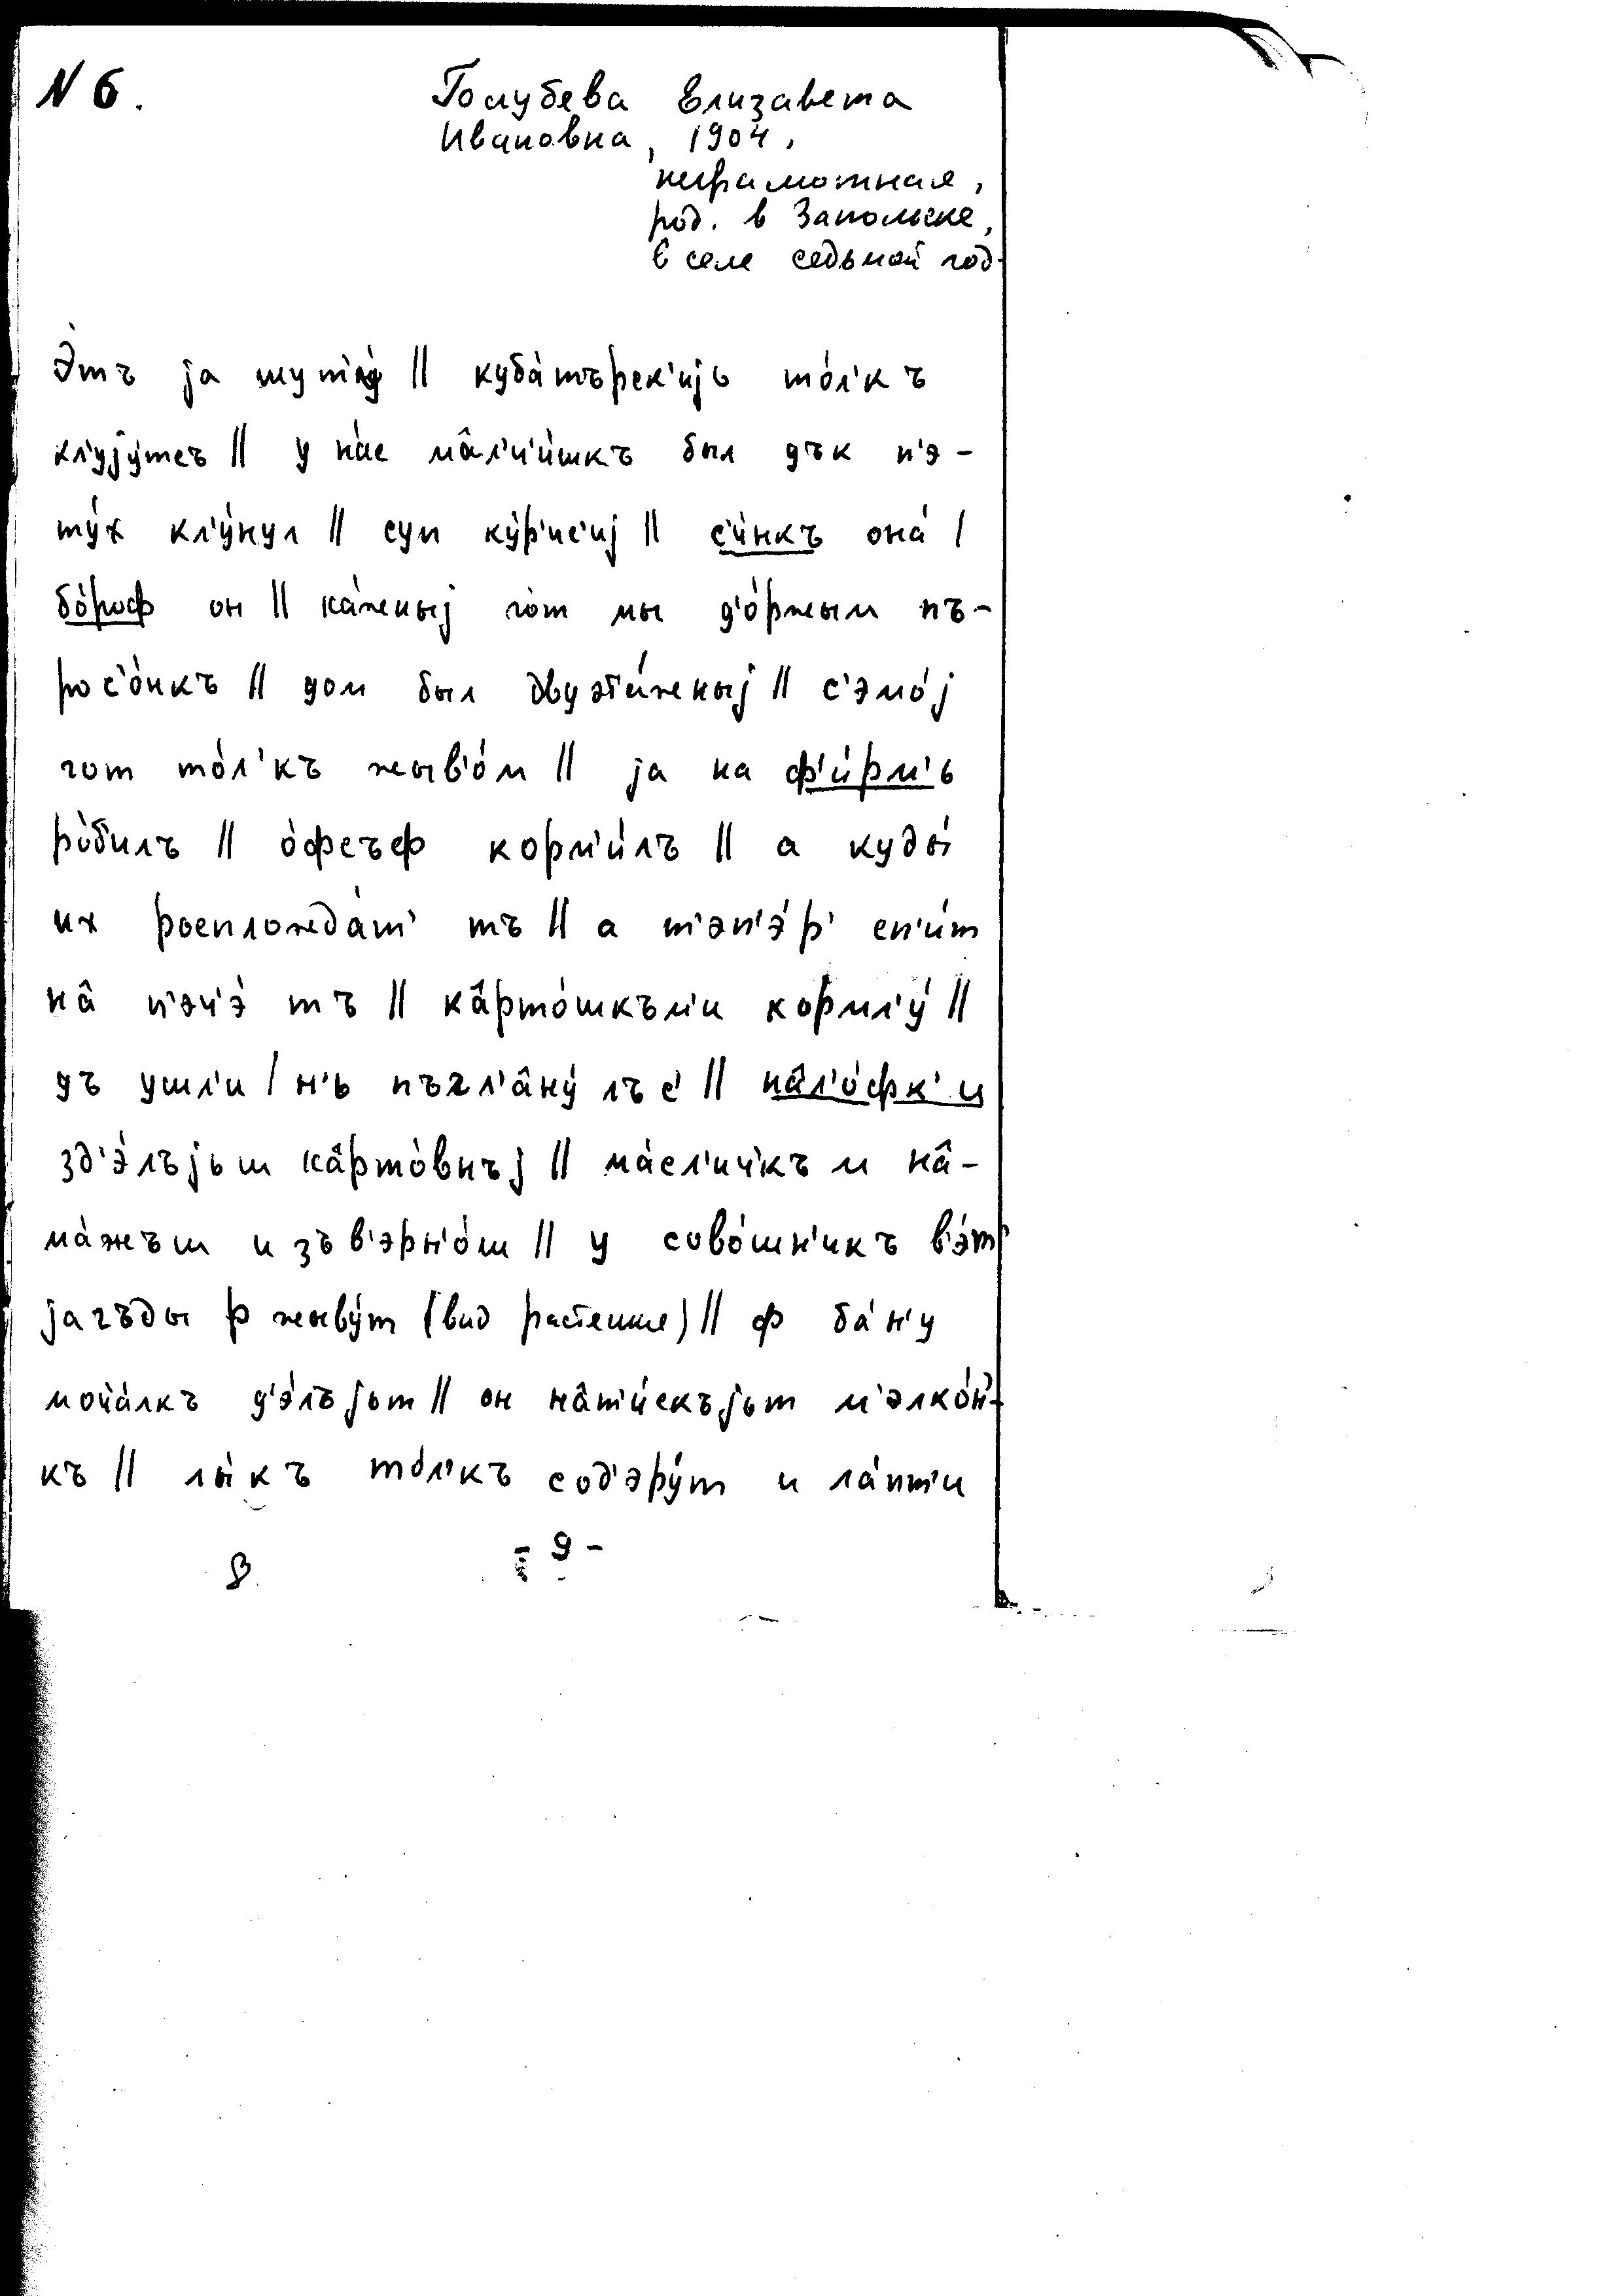 N 6.
Голубева Елизавета
Ивановна, 1904,
неграмотная,
род. в Запольске,
в селе седьмой год.
э́тъ jа шут'у́ || куба́търск'иjь то́л'къ
кл'уjу́тсъ || у на́с мâл'ч'и́шкъ был дък п'э-
ту́х кл'у́нул || суп ку́р'ис'иj || с'и́нкъ она́ /
бо́роф он || ка́жныj го́т мы д'о́ржым пъ-
рос'о́нкъ || дом был двуэта́жныj || с'эмо́j
гот то́л'къ жыв'о́м || jа на ф'и́рм'ь
ро́билъ || о́фсъф корм'и́лъ || а куды́
их роспложда́т' тъ || а т'эп'э́р' сп'и́т
нâ п'эч'э́ тъ || кâрто́шкъм'и кормл'у́ ||
дъ ушл'и / н'ь пъгл'âну́лъс' || нâл'о́фк'и
зд'э́лъjьш кâрто́внъj || ма́сл'ич'към нâ-
ма́жъш и зъв'эрн'о́ш || у сово́шн'икъ в'э́т'
jагъды р жыву́т (вид растения) || ф ба́н'у
моч'а́лкъ д'э́лъjьт || он нâт'и́скъjьт м'элко́н'-
къ || лы́къ то́л'къ сод'эру́т и ла́пт'и
- 9 -